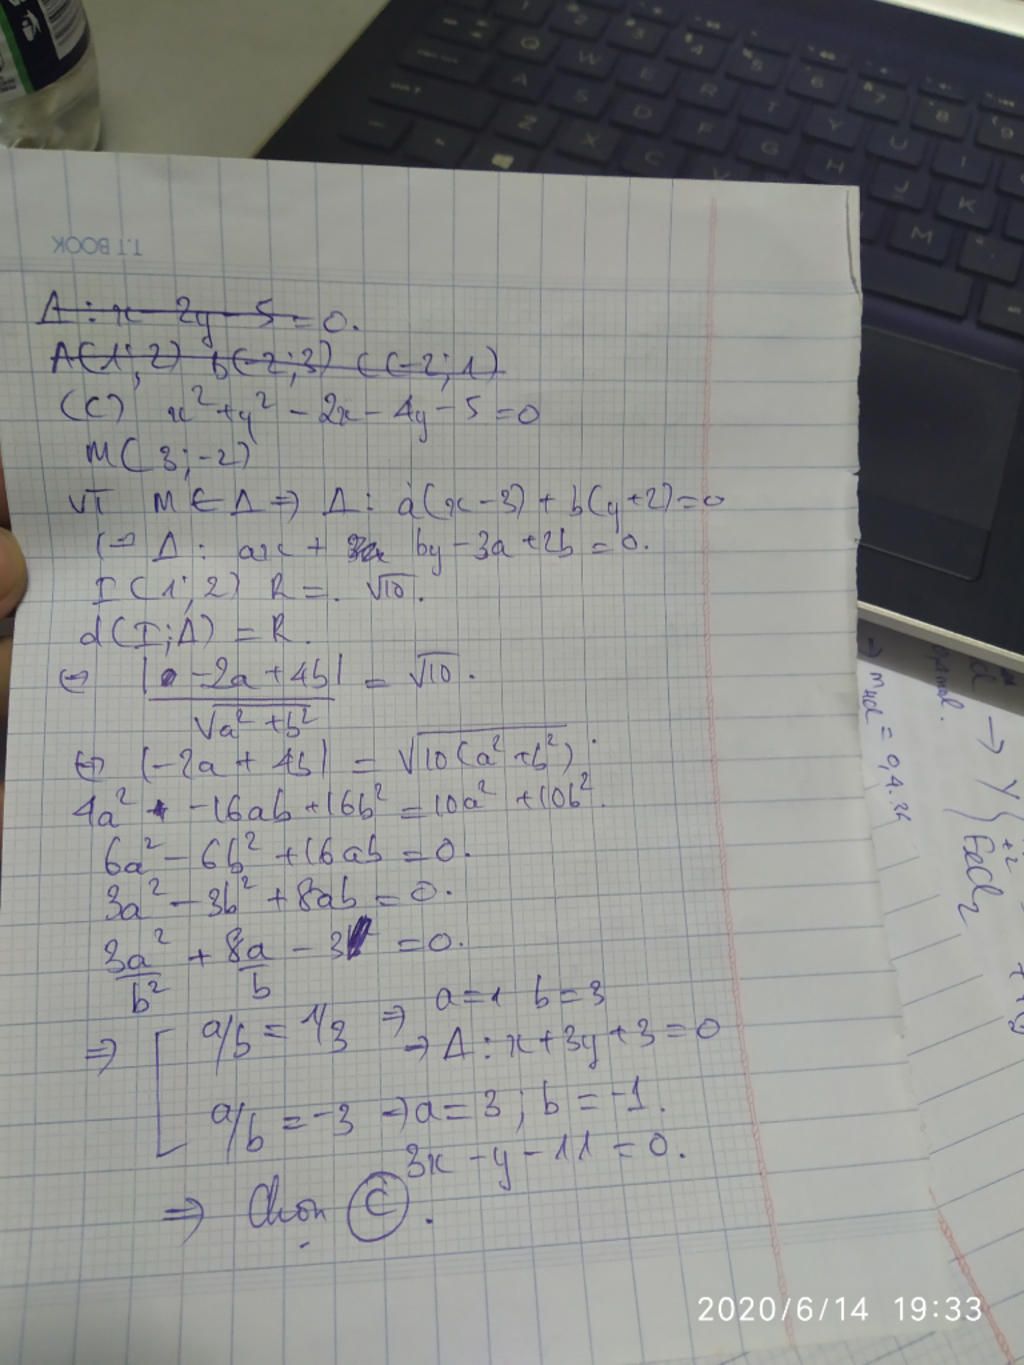 T.T BOOK
Δ : x - 2y - 5 = 0.
A(1;2) b(-2;3) C(-2;1)
(C) x² + y² - 2x - 4y - 5 = 0
M(3;-2)
VT M ∈ Δ ⇒ Δ: a(x-3) + b(y+2) = 0
⇔ Δ: ax + by - 3a + 2b = 0.
I(1;2) R = . √10.
d(I;Δ) = R.
⇔ |-2a + 4b| / √a² + b² = √10.
⇔ |-2a + 4b| = √10(a² + b²)
4a² - 16ab + 16b² = 10a² + 10b².
6a² - 6b² + 16ab = 0.
3a² - 3b² + 8ab = 0.
3a²/b² + 8a/b - 3 = 0.
⇒ [ a/b = 1/3 ⇒ a = 1 b = 3
→ Δ: x + 3y + 3 = 0
a/b = -3 → a = 3; b = -1.
3x - y - 11 = 0.
⇒ Chọn C.
→ mHCl = 0,4.36
→ Y { +2
FeCl₂
2020/6/14 19:33